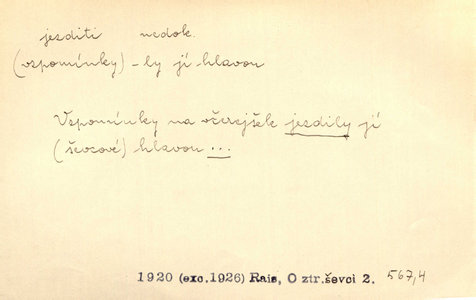 jezditi nedok.
(vzpomínky) -ly jí hlavou
Vzpomínky na včerejšek jezdily jí
(ševcové) hlavou ...
1920 (exc.1926) Rais, O ztr.ševci 2. 567,4